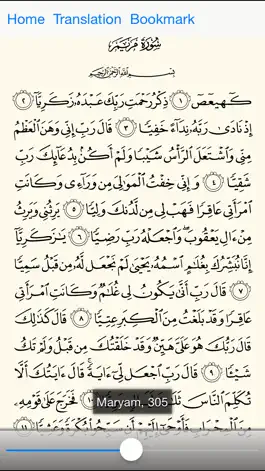 Home Translation Bookmark
سُورَةُ مَرْيَمَ
بِسْمِ اللَّهِ الرَّحْمَٰنِ الرَّحِيمِ
كٓهيعٓصٓ ١ ذِكْرُ رَحْمَتِ رَبِّكَ عَبْدَهُۥ زَكَرِيَّآ ٢
إِذْ نَادَىٰ رَبَّهُۥ نِدَآءً خَفِيًّا ٣ قَالَ رَبِّ إِنِّى وَهَنَ ٱلْعَظْمُ
مِنِّى وَٱشْتَعَلَ ٱلرَّأْسُ شَيْبًا وَلَمْ أَكُنۢ بِدُعَآئِكَ رَبِّ
شَقِيًّا ٤ وَإِنِّى خِفْتُ ٱلْمَوَٰلِىَ مِن وَرَآءِى وَكَانَتِ
ٱمْرَأَتِى عَاقِرًا فَهَبْ لِى مِن لَّدُنكَ وَلِيًّا ٥ يَرِثُنِى وَيَرِثُ
مِنْ ءَالِ يَعْقُوبَ ۖ وَٱجْعَلْهُ رَبِّ رَضِيًّا ٦ يَٰزَكَرِيَّآ
إِنَّا نُبَشِّرُكَ بِغُلَٰمٍ ٱسْمُهُۥ يَحْيَىٰ لَمْ نَجْعَل لَّهُۥ مِن قَبْلُ سَمِيًّا
٧ قَالَ رَبِّ أَنَّىٰ يَكُونُ لِى غُلَٰمٌ وَكَانَتِ ٱمْرَأَتِى
عَاقِرًا وَقَدْ بَلَغْتُ مِنَ ٱلْكِبَرِ عِتِيًّا ٨ قَالَ كَذَٰلِكَ
قَالَ رَبُّكَ هُوَ عَلَىَّ هَيِّنٌ وَقَدْ خَلَقْتُكَ مِن قَبْلُ وَلَمْ تَكُ
شَيْـًٔا ٩ قَالَ رَبِّ ٱجْعَل لِّىٓ ءَايَةً ۚ قَالَ ءَايَتُكَ أَلَّا
تُكَلِّمَ ٱلنَّاسَ ثَلَٰثَ فَخَرَجَ عَلَىٰ قَوْمِهِۦ
Maryam, 305
مِنَ ٱلْمِحْرَابِ فَأَوْحَىٰٓ إِلَيْهِمْ أَن سَبِّحُوا۟ بُكْرَةً وَعَشِيًّا ١١